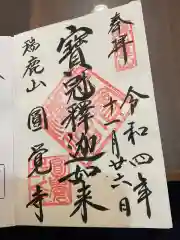 奉拝
令和四年
十一月廿六日
寳冠釋迦如来
瑞鹿山
圓覚寺